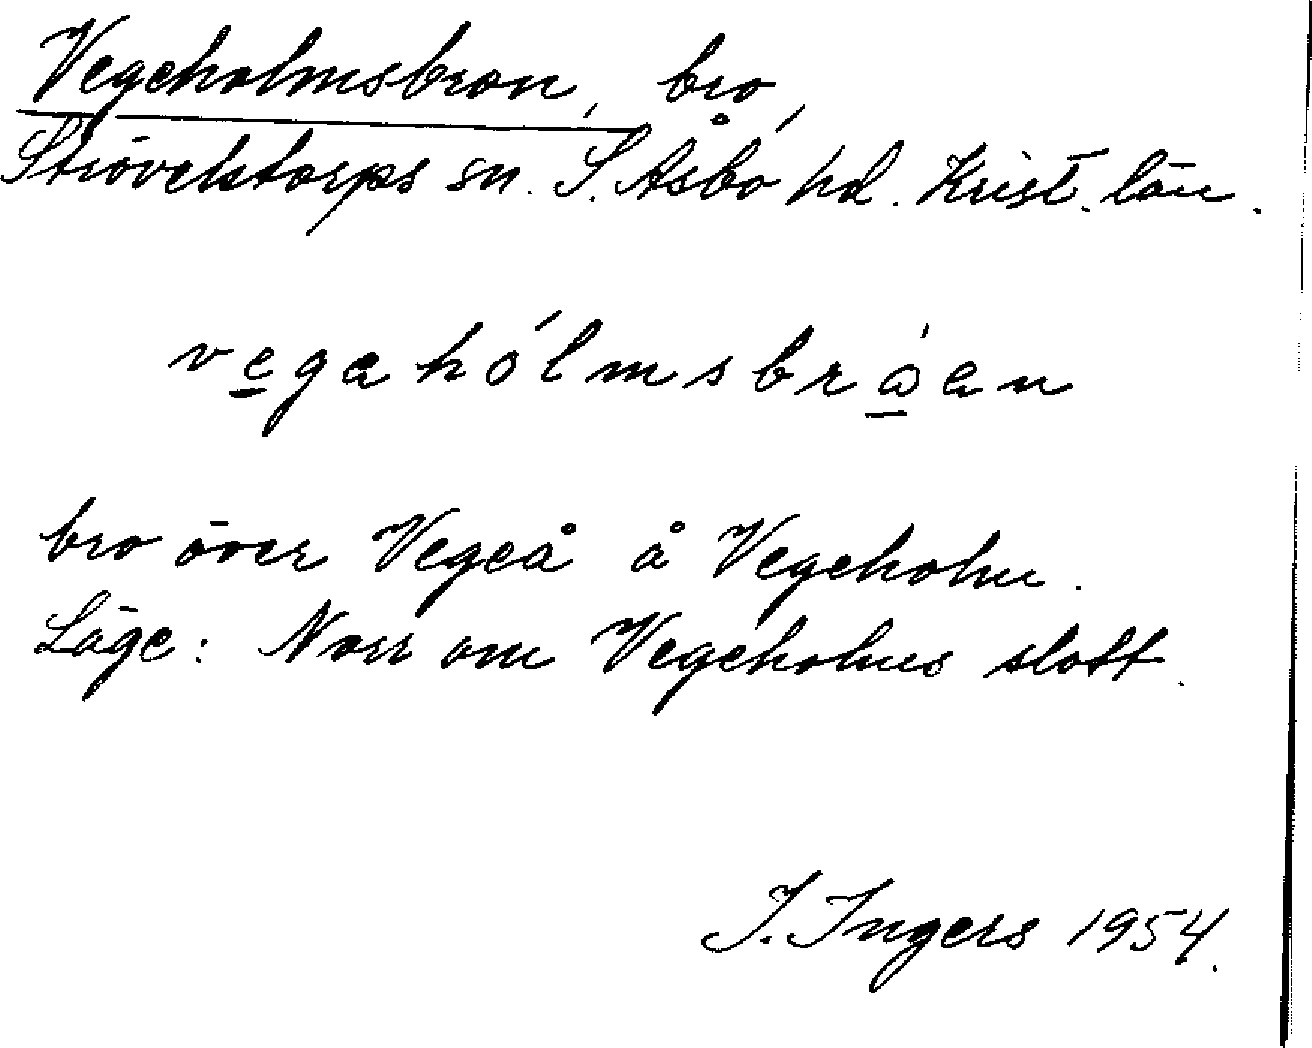 Vegeholmsbron, bro,
Strövelstorps sn. S. Åsbo hd. Krist. län.
vegahólmsbråan
bro över Vegeå å Vegeholm.
Läge: Norr om Vegeholms slott.
I. Ingers 1954.